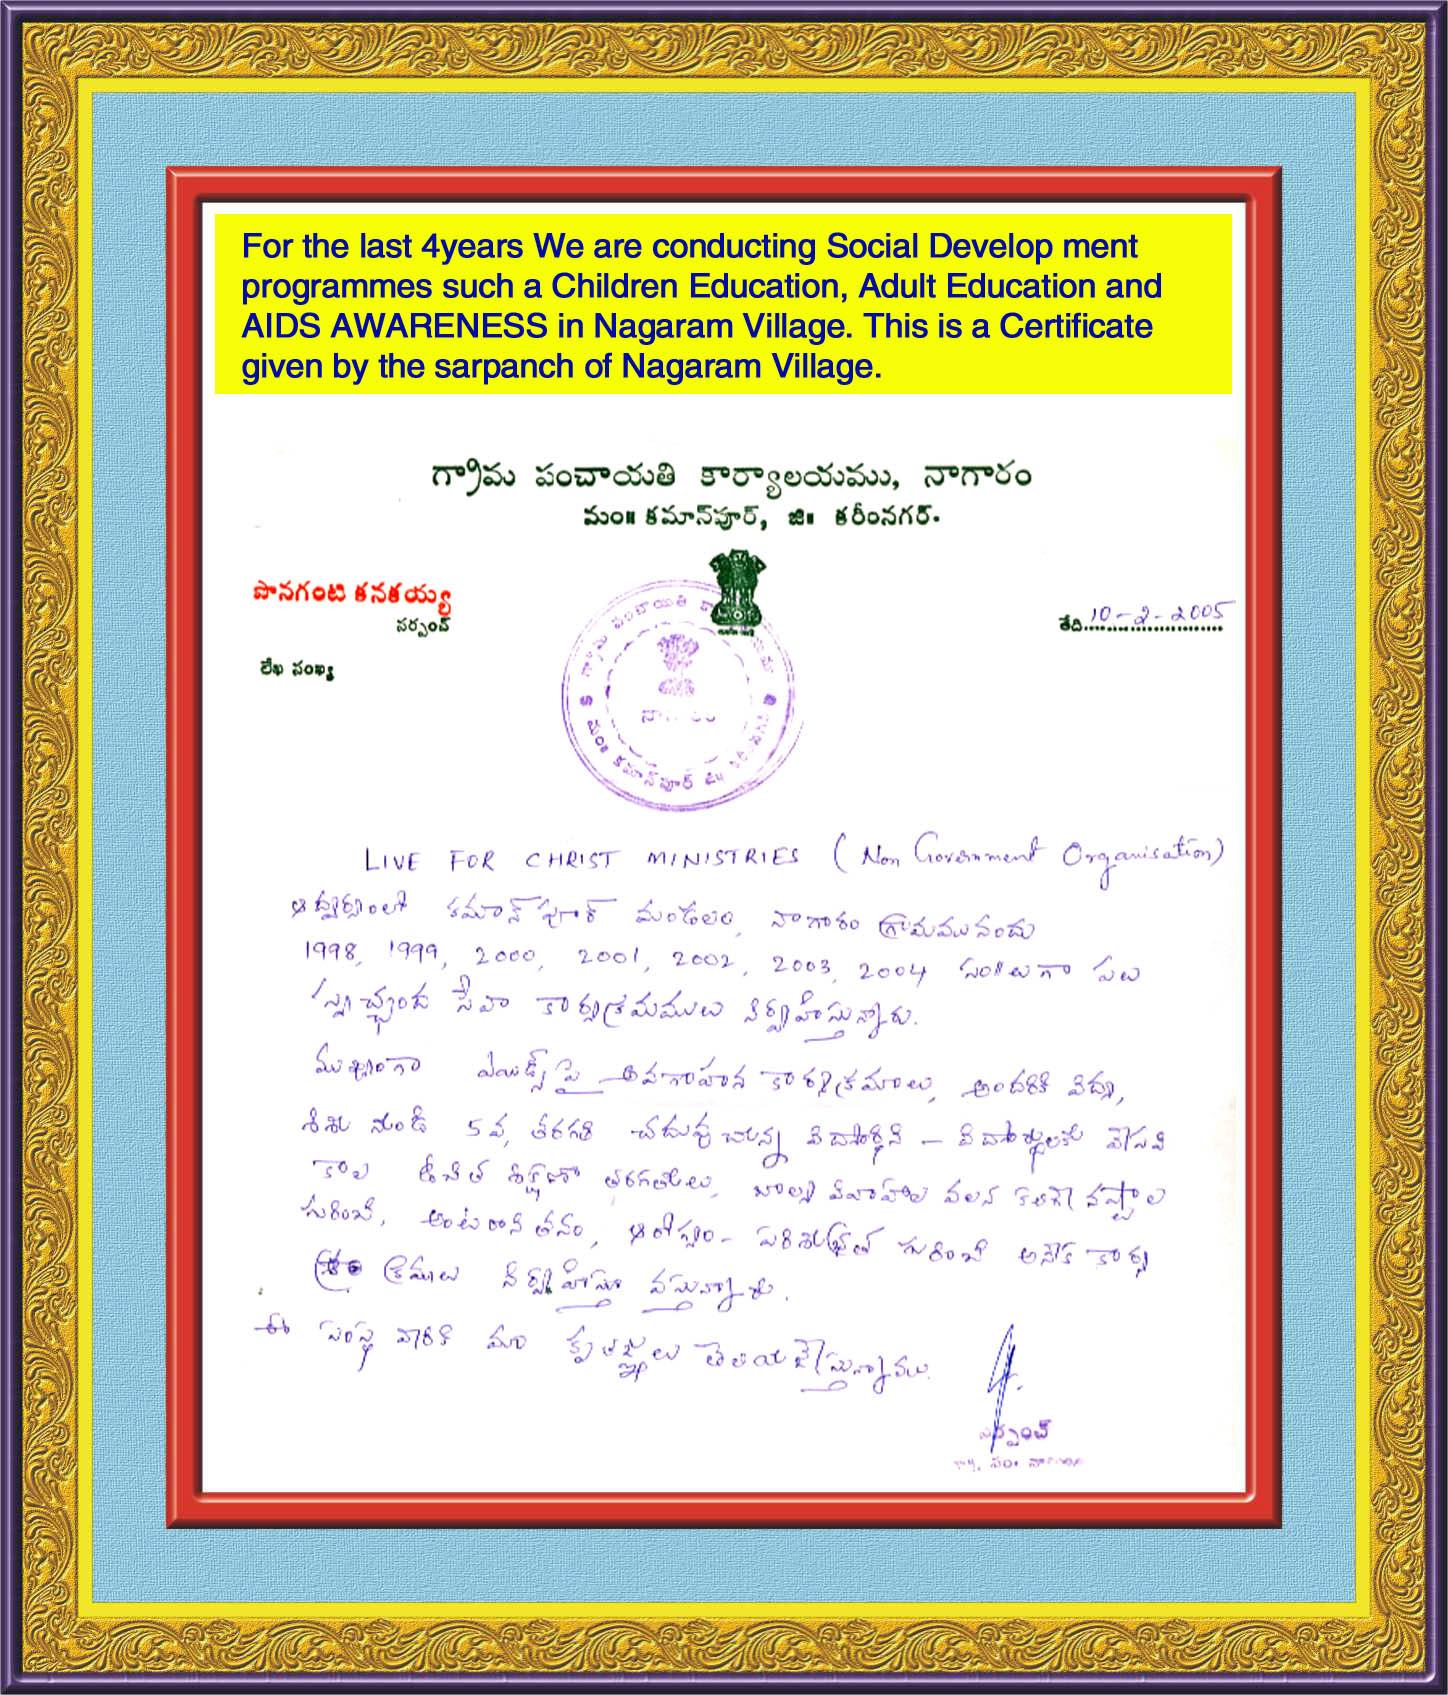 For the last 4years We are conducting Social Develop ment
programmes such a Children Education, Adult Education and
AIDS AWARENESS in Nagaram Village. This is a Certificate
given by the sarpanch of Nagaram Village.
గ్రామ పంచాయతి కార్యాలయము, నాగారం
మం॥ కమాన్‌పూర్, జి॥ కరీంనగర్.
పొనగంటి కనకయ్య
సర్పంచ్
తేది 10-2-2005
లేఖ సంఖ్య
LIVE FOR CHRIST MINISTRIES (Non Government Organisation)
ఆధ్వర్యంలో కమాన్‌పూర్ మండలం, నాగారం గ్రామమునందు
1998, 1999, 2000, 2001, 2002, 2003, 2004 సం॥లుగా పలు
స్వచ్ఛంద సేవా కార్యక్రమములు నిర్వహిస్తున్నారు.
ముఖ్యంగా ఎయిడ్స్ పై అవగాహన కార్యక్రమాలు, అందరికి విద్య,
శిశు నుండి 5వ, తరగతి చదువుచున్న విద్యార్థిని - విద్యార్థులకు వేసవి
కాల ఉచిత శిక్షణా తరగతులు, బాల్య వివాహాల వలన కలిగే నష్టాల
గురించి, అంటరానితనం, ఆరోగ్యం - పరిశుభ్రత గురించి అనేక కార్య
క్రమాలు నిర్వహిస్తూ వస్తున్నారు.
ఈ సంస్థ వారికి మా కృతజ్ఞతలు తెలియజేస్తున్నాము.
సర్పంచ్